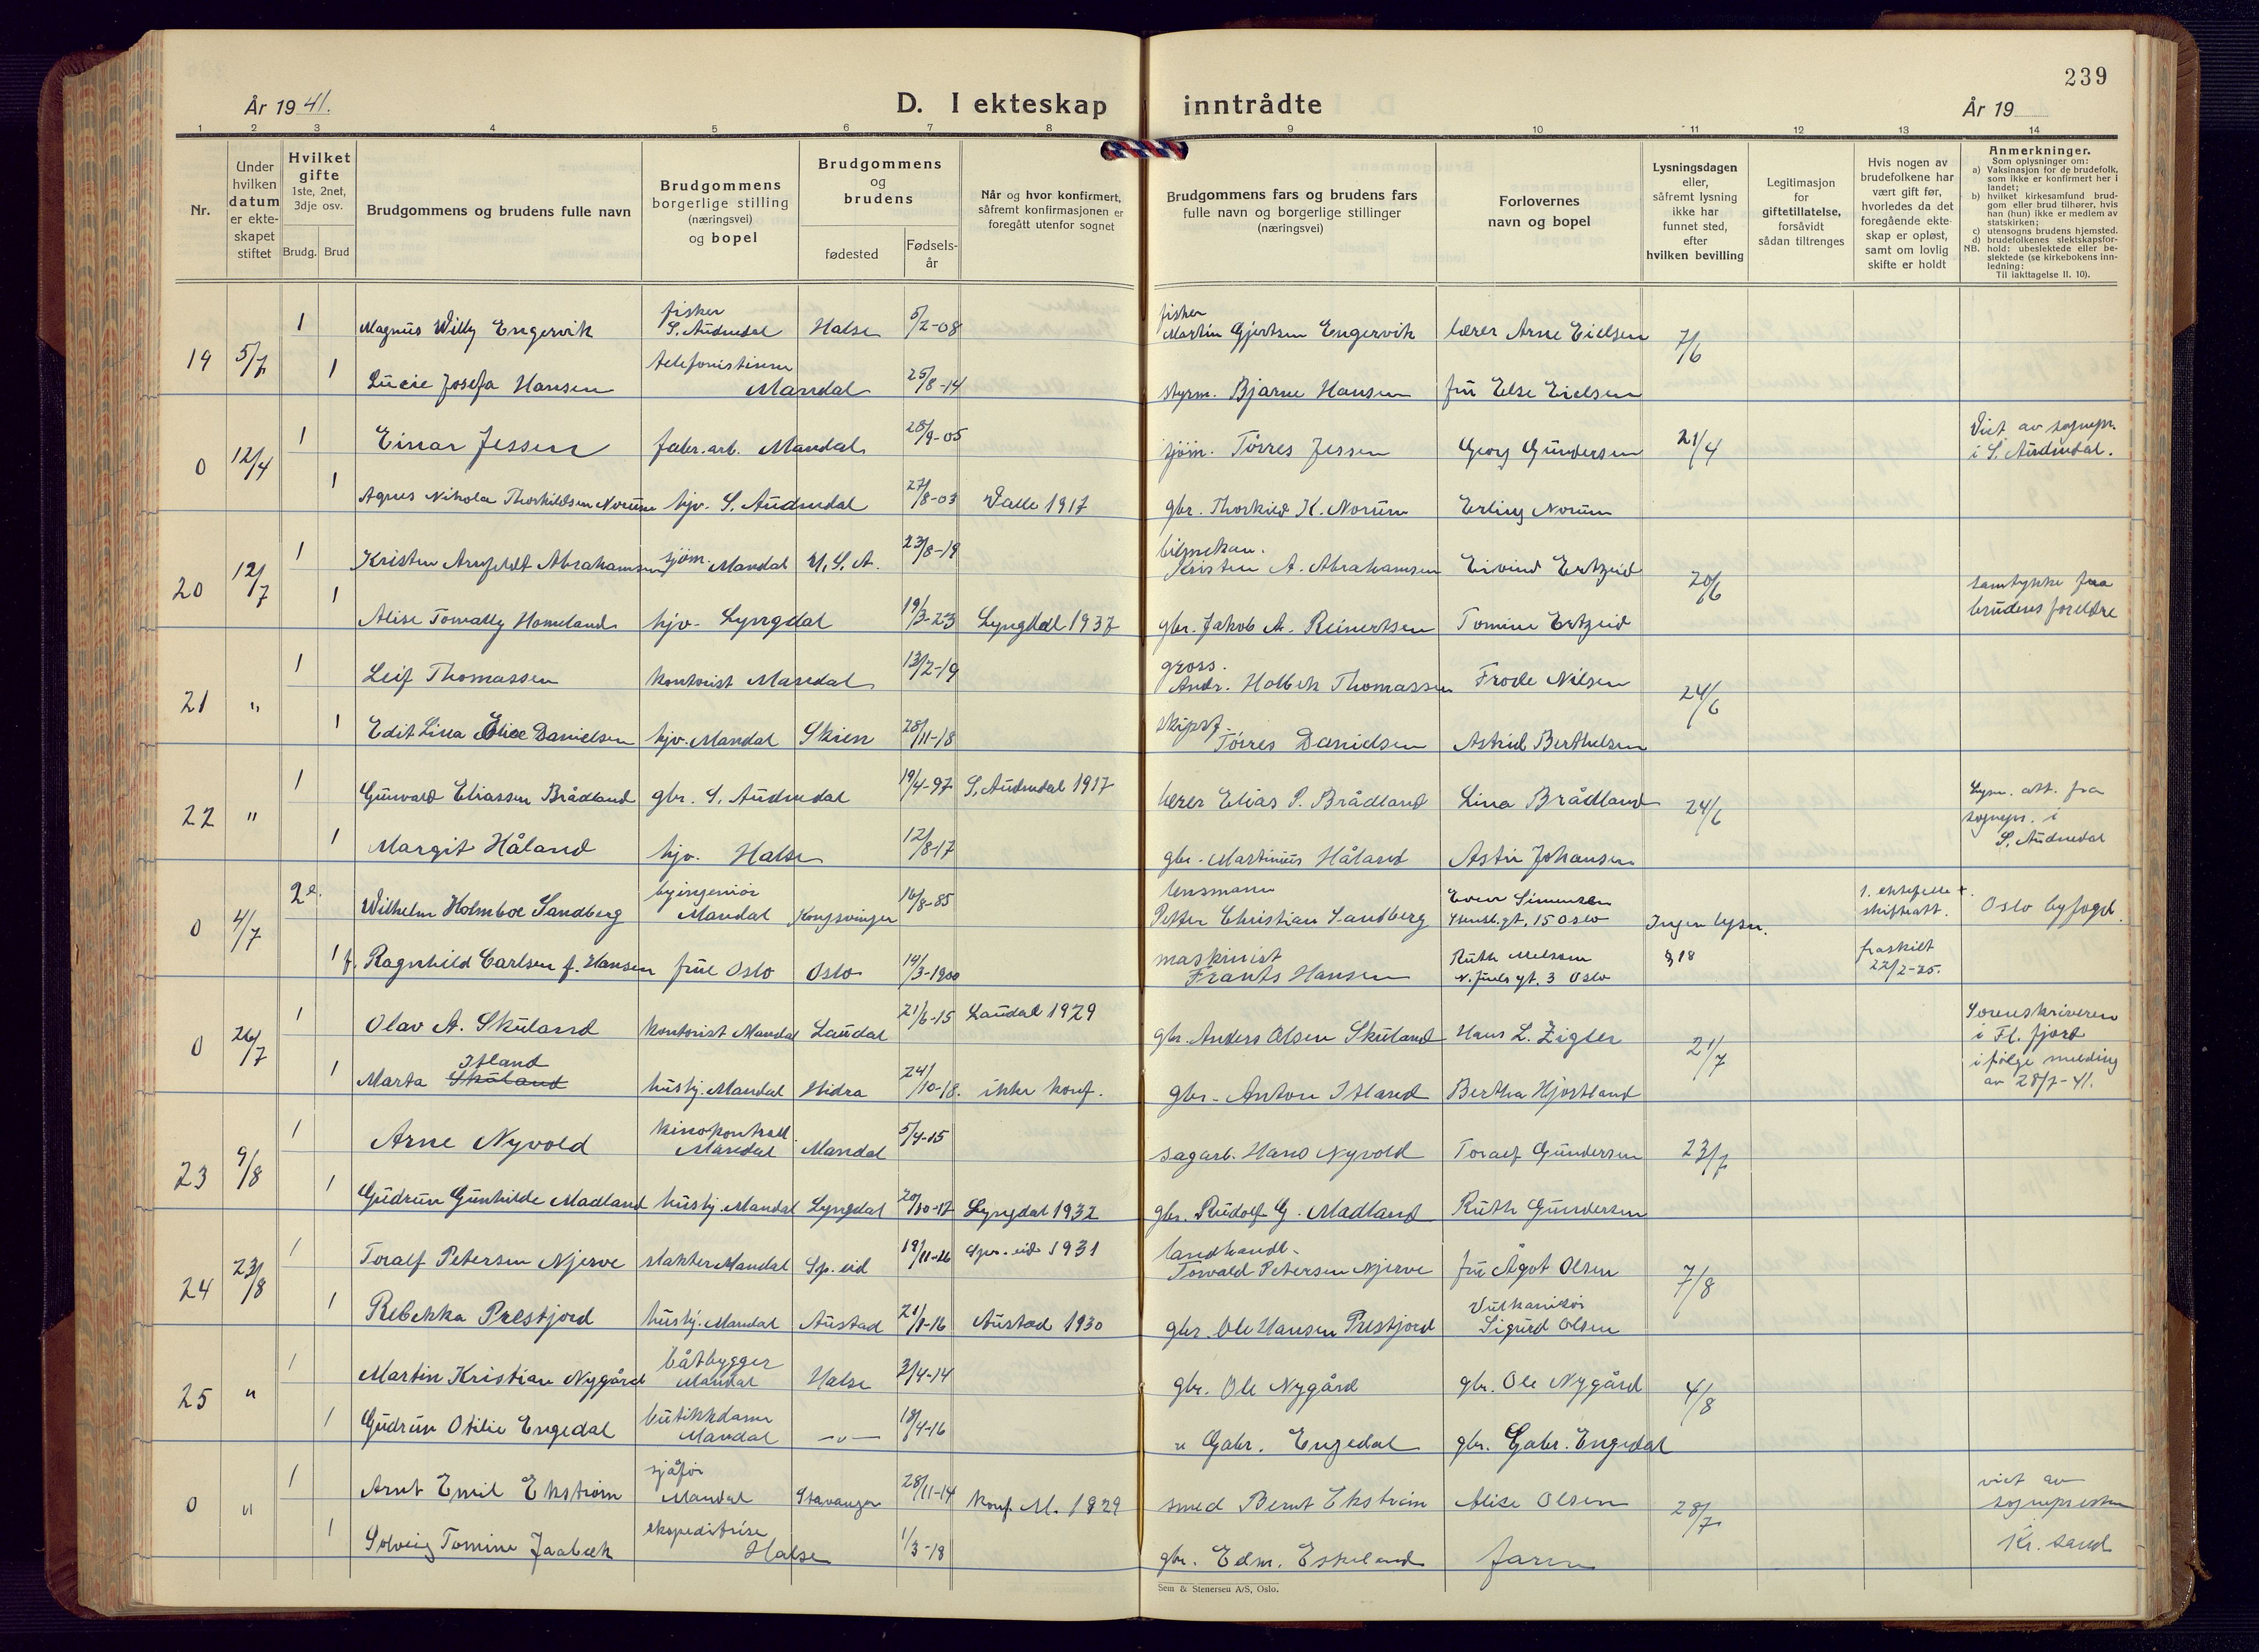 239
År 19 41.
D. I ekteskap inntrådte
År 19
1 2 3 4 5 6 7 8 9 10 11 12 13 14
Nr.
Under hvilken datum er ekteskapet stiftet
Hvilket gifte
1ste, 2net, 3dje osv.
Brudg. Brud
Brudgommens og brudens fulle navn
Brudgommens borgerlige stilling (næringsvei) og bopel
Brudgommens og brudens
fødested
Fødsels-år
Når og hvor konfirmert, såfremt konfirmasjonen er foregått utenfor sognet
Brudgommens fars og brudens fars fulle navn og borgerlige stillinger (næringsvei)
Forlovernes navn og bopel
Lysningsdagen eller, såfremt lysning ikke har funnet sted, efter hvilken bevilling
Legitimasjon for giftetillatelse, forsåvidt sådan tiltrenges
Hvis nogen av brudefolkene har vært gift før, hvorledes da det foregående ekteskap er opløst, samt om lovlig skifte er holdt
Anmerkninger.
Som oplysninger om:
a) Vaksinasjon for de brudefolk, som ikke er konfirmert her i landet;
b) hvilket kirkesamfund brudgom eller brud tilhører, hvis han (hun) ikke er medlem av statskirken;
c) utensogns brudens hjemsted.
d) brudefolkenes slektskapsforhold: ubeslektede eller beslektede (se kirkebokens innledning:
NB. Til iakttagelse II. 10).
19 5/7
1 Magnus Willy Engervik fisker S. Audnedal Halse 5/2-08 fisker Martin Gjertsen Engervik lærer Arne Eielsen 7/6
1 Lucie Josefa Hansen telefonistinne Mandal 25/8-14 styrm. Bjarne Hansen fru Else Eielsen
0 12/4
1 Einar Jessen fabr.arb. Mandal 28/9-05 sjøm. Tørres Jessen Georg Gundersen 21/4 Viet av sognepr. i S. Audnedal.
1 Agnes Nikola Thorkildsen Norum hjv. S. Audnedal 27/8-03 Valle 1917 gbr. Thorkild K. Norum Erling Norum
20 12/7
1 Kristen Arnfeldt Abrahamsen sjøm. Mandal U.S.A. 23/8-19 bilmekan. Kristen A. Abrahamsen Eivind Ertzeid 20/6 samtykke fra brudens foreldre
1 Alise Tomally Homeland hjv. Lyngdal 19/3-23 Lyngdal 1937 gbr. Jakob A. Reinertsen Tomine Ertzeid
21 "
1 Leif Thomassen kontorist Mandal 13/2-19 gross. Andr. Holbek Thomassen Frode Nilsen 24/6
1 Edit Lina Elice Danielsen hjv. Mandal Skien 28/11-18 skipsf. Tørres Danielsen Astrid Berthelsen
22 "
1 Gunvald Eliassen Brådland gbr. S. Audnedal 19/4-97 S. Audnedal 1917 lærer Elias P. Brådland Lina Brådland 24/6 Lysn. att. fra sognepr. i S. Audnedal
1 Margit Håland hjv. Halse 12/8-17 gbr. Martinius Håland Astri Johansen
0 4/7
2 e. Wilhelm Holmboe Sandberg byingeniør Mandal Kongsvinger 16/8-85 lensmann Petter Christian Sandberg Even Simensen Stensb.gt. 15 Oslo Ingen lysn. 1. ektefelle +. skifteatt. Oslo byfogd.
1 f. Ragnhild Carlsen f. Hansen frue Oslo Oslo 14/3-1900 maskinist Frants Hansen Ruth Nelssen N. Juels gt. 3 Oslo § 18 fraskilt 22/2-25.
0 26/7
1 Olav A. Skuland kontorist Mandal Laudal 21/6-15 Laudal 1929 gbr. Anders Olsen Skuland Hans L. Zigler 21/7 Sorenskriveren i Fl. fjord i følge melding av 28/7-41.
1 Marta Skuland Itland husbj. Mandal Hidra 24/10-18. ikke konf. gbr. Anton Itland Bertha Hjortland
23 9/8
1 Arne Nyvold kinokontroll. Mandal Mandal 5/4-15 sagarb. Hans Nyvold Toralf Gundersen 23/7
1 Gudrun Gunhilde Madland husbj. Mandal Lyngdal 20/10-17 Lyngdal 1932 gbr. Rudolf G. Madland Ruth Gundersen
24 23/8
1 Toralf Petersen Njerve slakter Mandal Sp. eid 19/11-16 Spr. eid 1931 landhandl. Torvald Petersen Njerve fru Ågot Olsen 7/8
1 Rebekka Prestjord husbj. Mandal Austad 21/1-16 Austad 1930 gbr. Ole Hansen Prestjord Vulkanisør Sigurd Olsen
25 "
1 Martin Kristian Nygård båtbygger Mandal Halse 3/4-14 gbr. Ole Nygård gbr. Ole Nygård 4/8
1 Gudrun Otilie Engedal butikkdame Mandal —"— 18/4-16 " Gabr. Engedal gbr. Gabr. Engedal
0 "
1 Arnt Emil Ekstrøm sjåfør Mandal Stavanger 28/11-14 konf. M. 1929 smed Bernt Ekstrøm Alise Olsen 28/7 viet av sognepresten Kr. sand
1 Solveig Tomine Jaabæk ekspeditrise Halse 1/3-18 gbr. Edm. Eskeland faren
Sem & Stenersen A/S, Oslo.